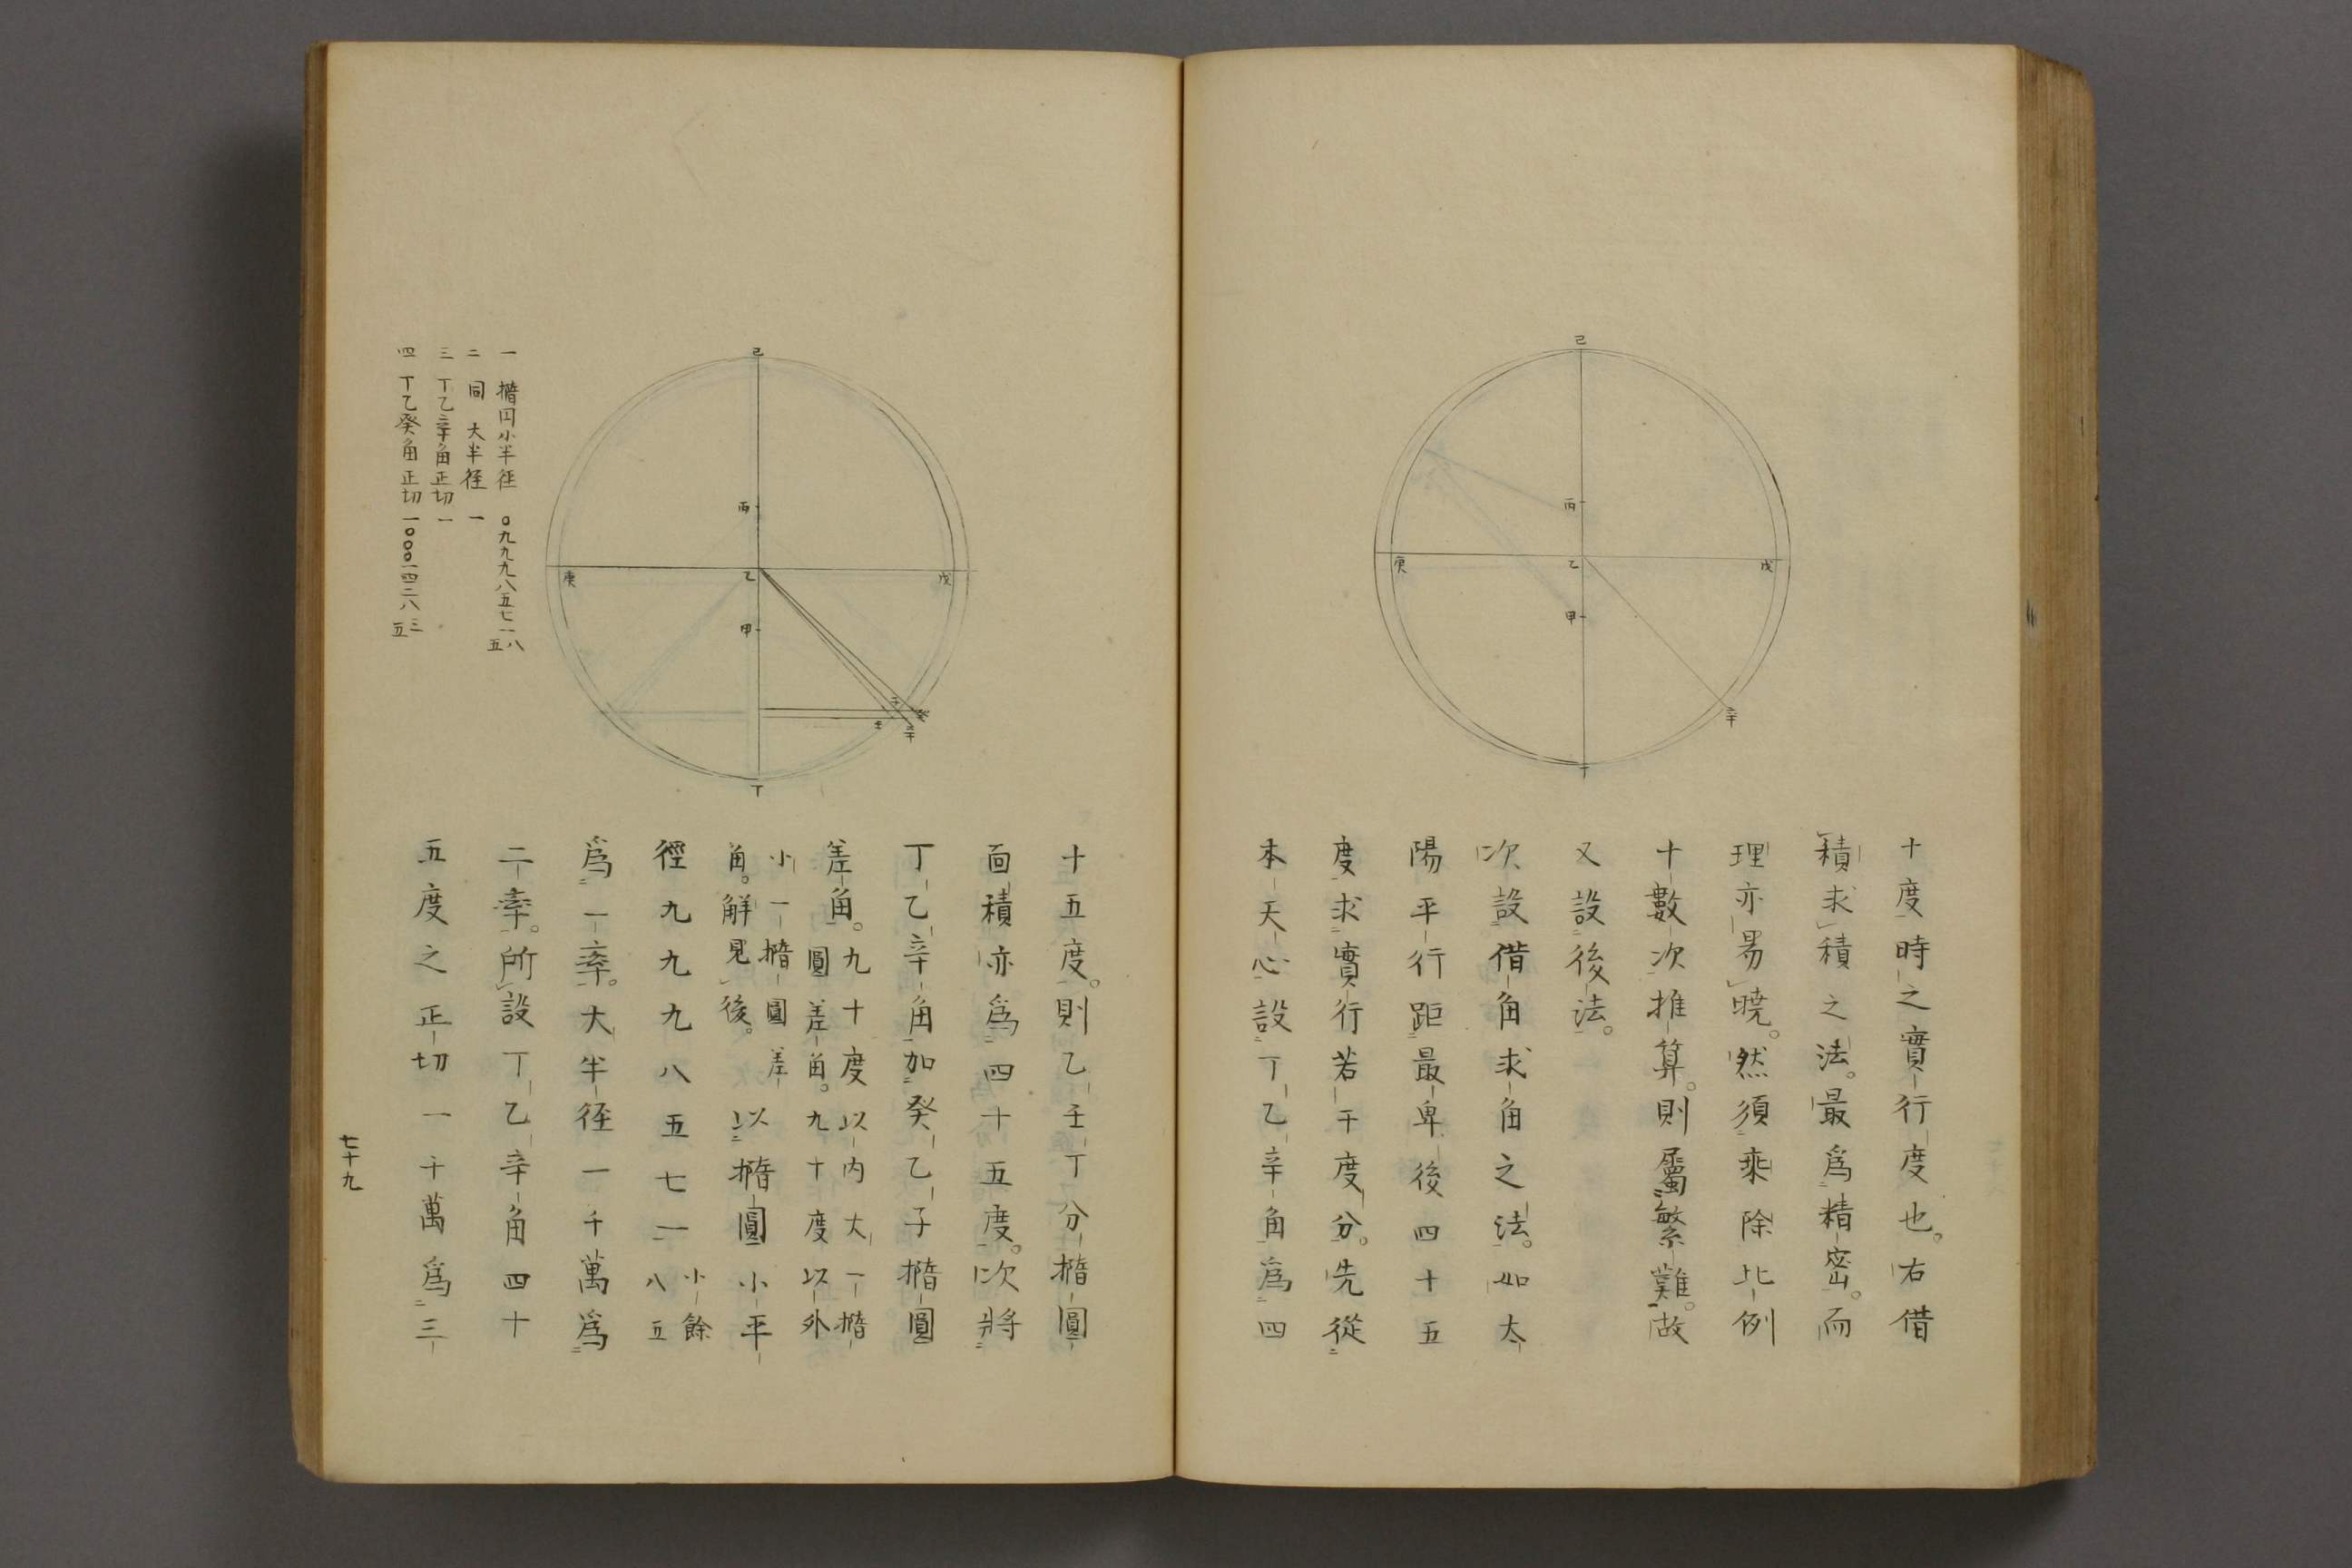 己
丙
庚
乙
戊
甲
辛
丁
十度時之實行度也。右借
積求積之法。最爲精密。而
理亦易曉。然須乘除比例
十數次推算。則屬繁難。故
又設後法。
次設借角求角之法。如太
陽平行距最卑後四十五
度求實行若干度分。先從
本天心設丁乙辛角爲四
己
丙
庚
乙
戊
甲
子
癸
壬
辛
丁
一 撱円小半径 〇九九九八五七一八五
二 同 大半径 一
三 丁乙辛角正切 一
四 丁乙癸角正切 一〇〇〇一四二八三五
十五度。則乙壬丁分撱圓
面積亦爲四十五度。次將
丁乙辛角加癸乙子撱圓
差角。九十度以内大一撱
圓差角。九十度以外
小一撱圓差
角。解見後。以撱圓小平
徑九九九八五七一小餘
八五
爲一率。大半径一千萬爲
二率。所設丁乙辛角四十
五度之正切一千萬爲三
七十九